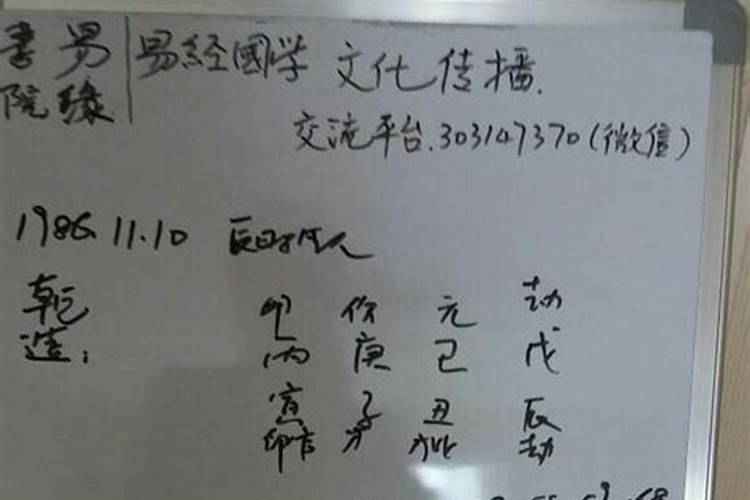 易缘書院
易經國学 文化传播.
交流平台.303147370(微信)
1986.11.10 辰时生人
乾造:
印 伤 元 劫
丙 庚 己 戊
寅 子 丑 辰
印官 才 比 劫